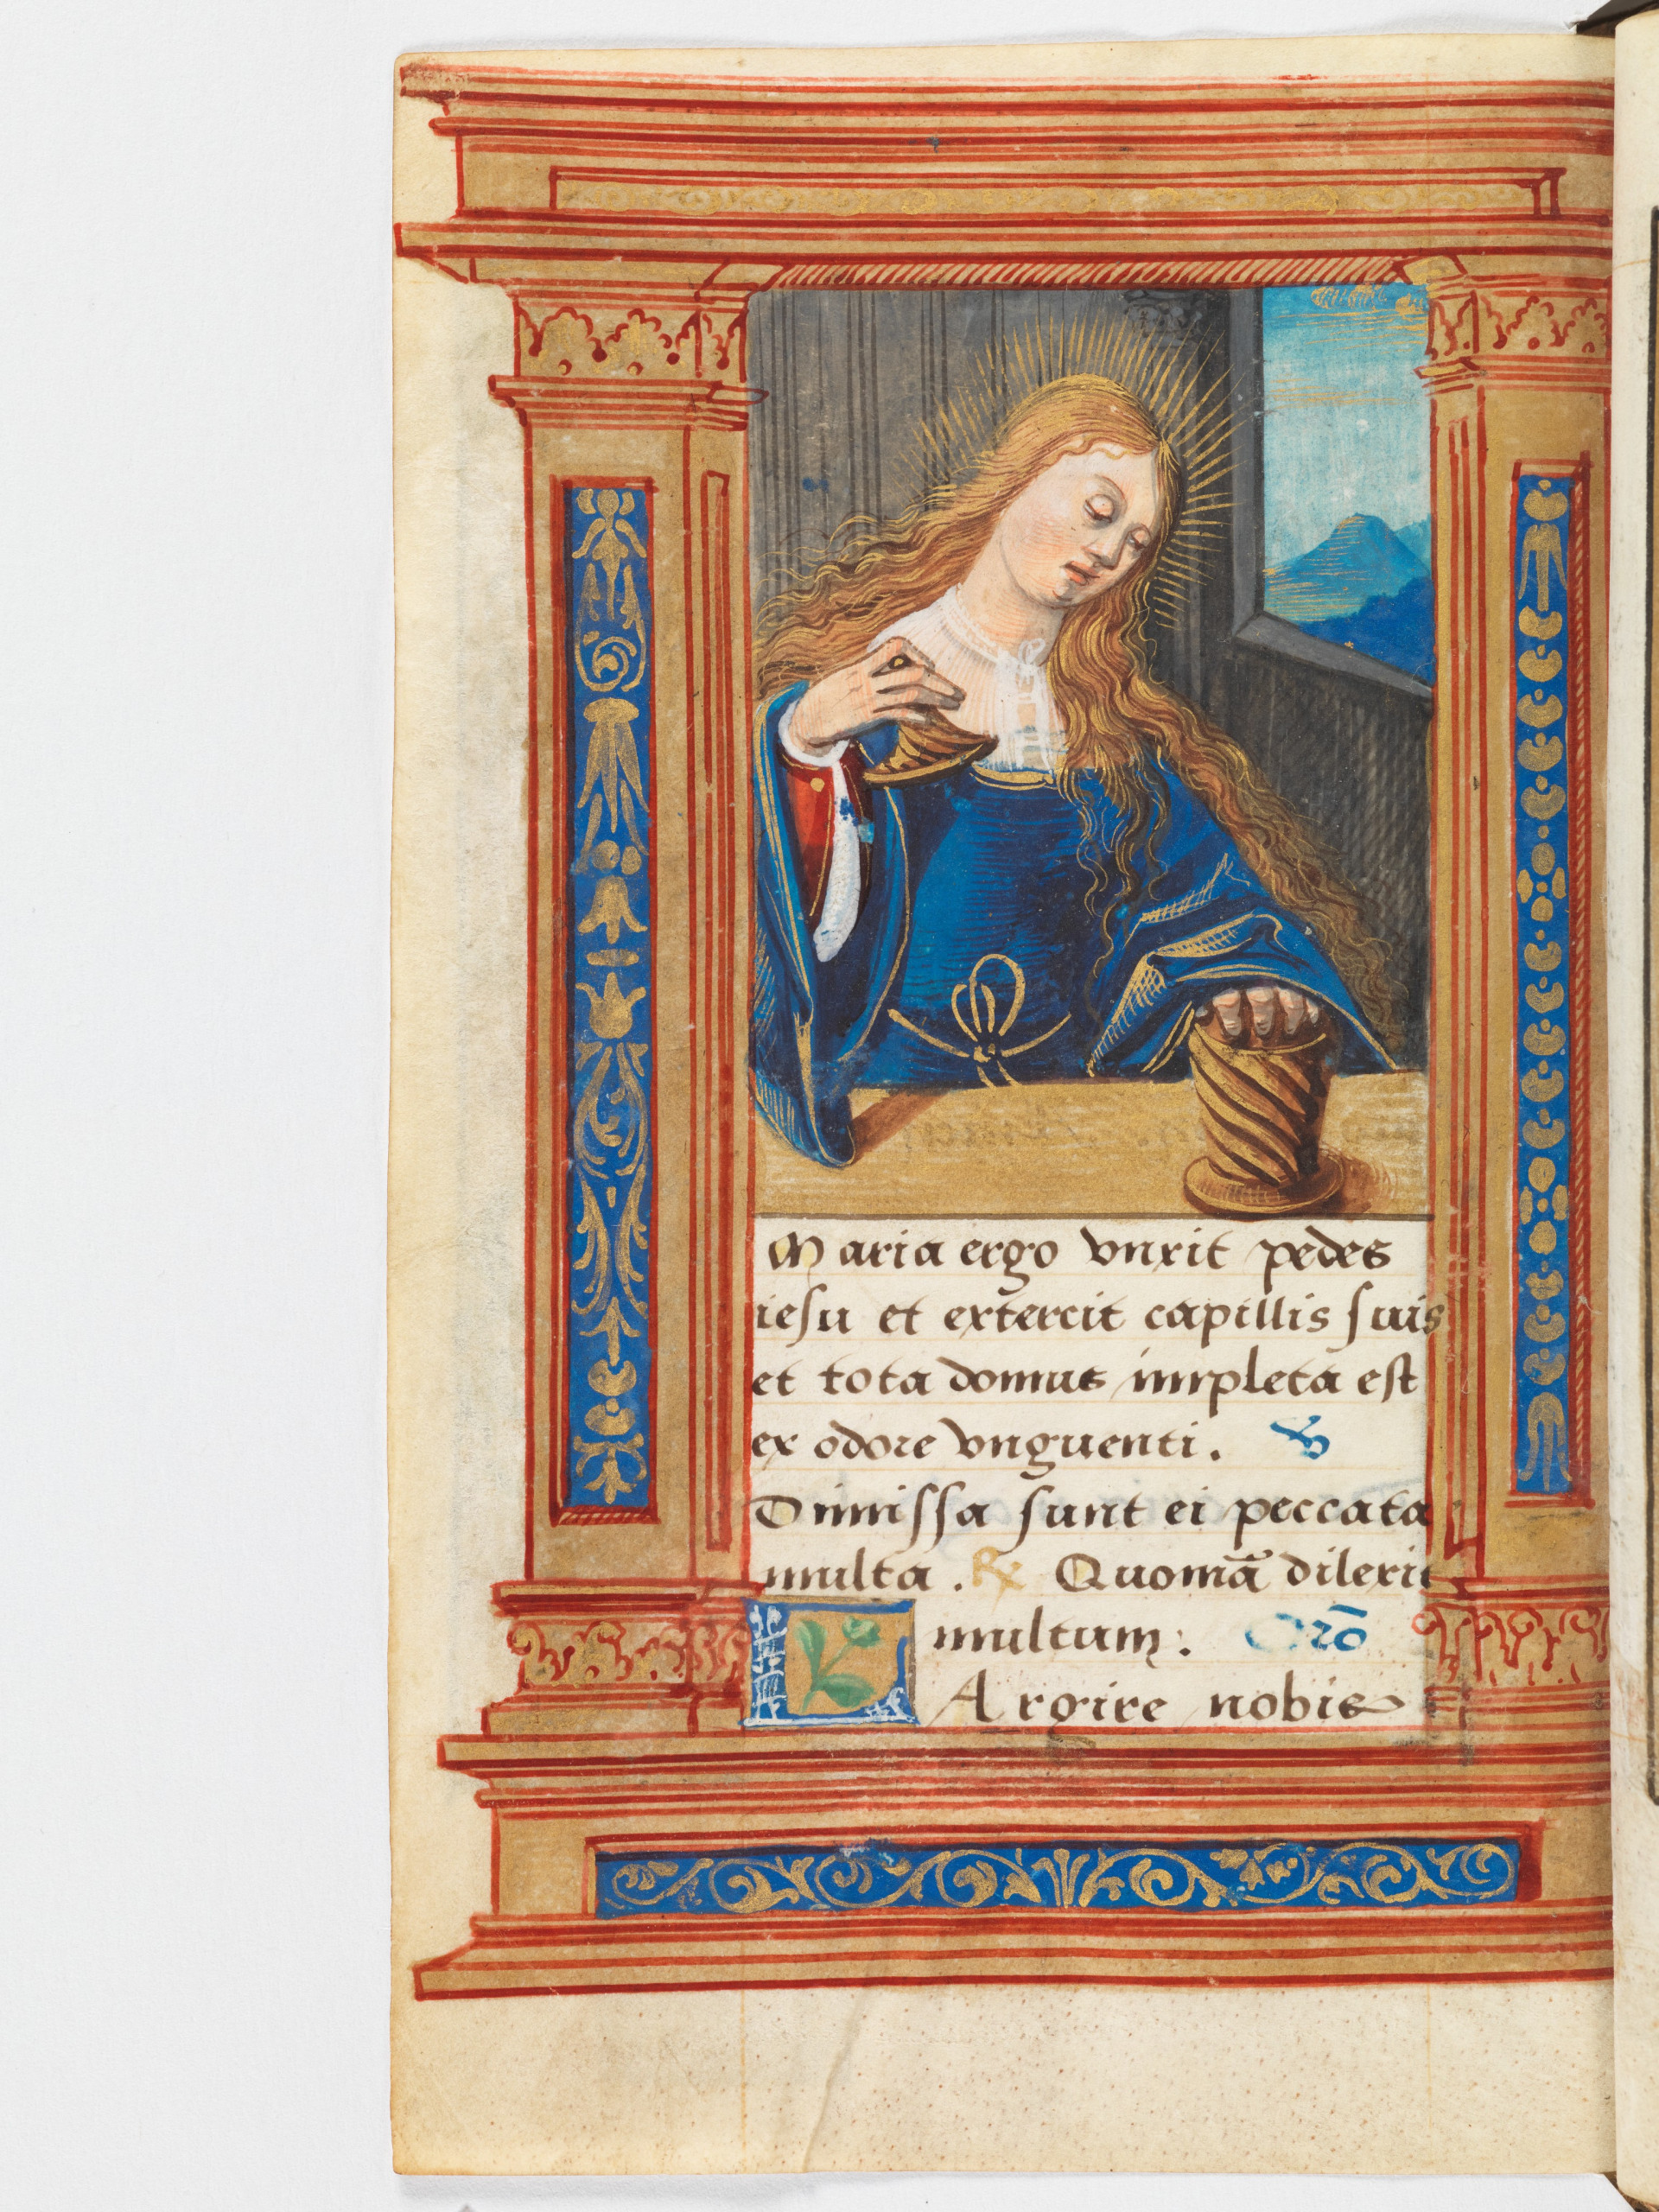 Maria ergo vnxit pedes
iesu et extercit capillis suis
et tota domus impleta est
ex odore vnguenti. V
Dimissa sunt ei peccata
multa. R Quomã dilexit
multum. Orõ
Largire nobis